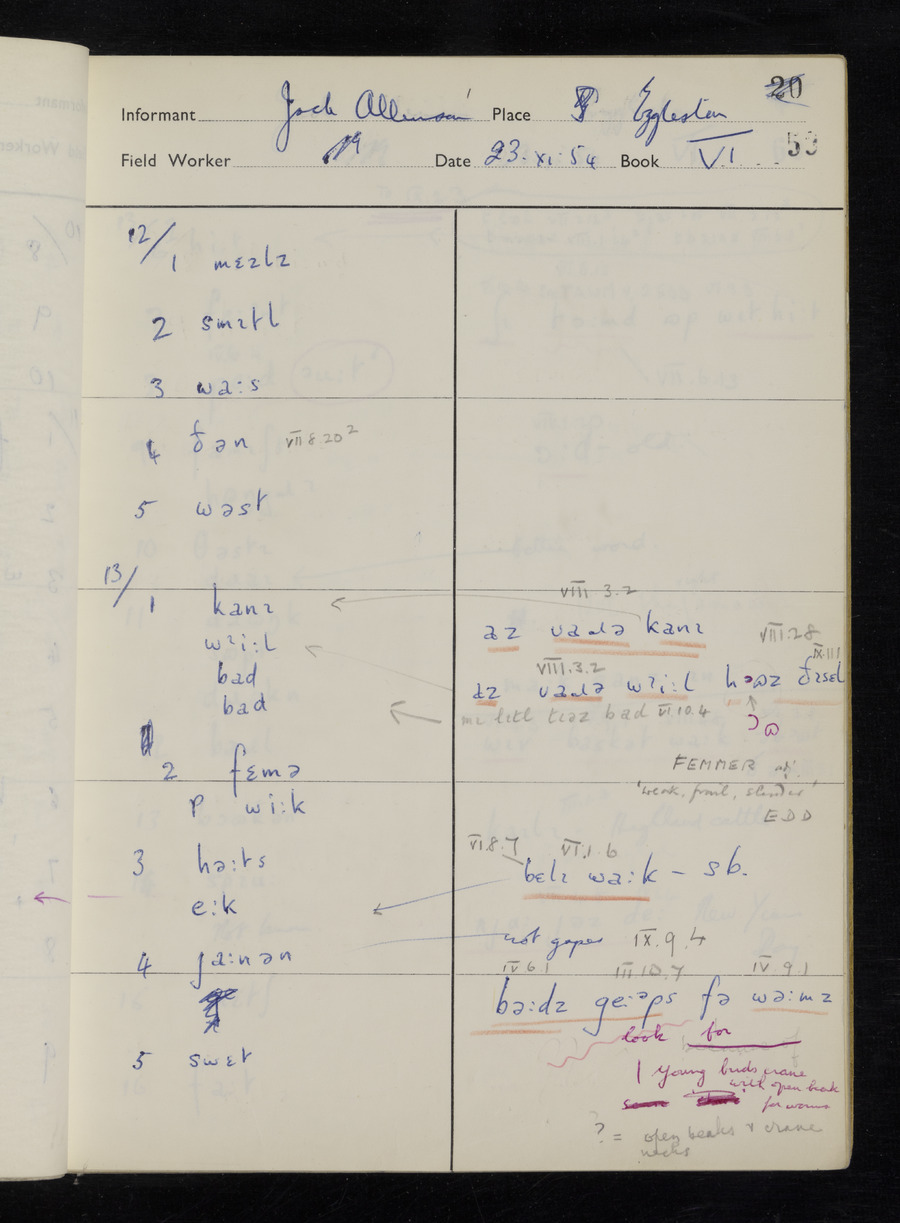 20
Informant Jack Allinson Place Eggleston
53
Field Worker Date 23.xi.54 Book VI
12/
1 mɛzlz
2 smɪtl
3 wa:s
4 ðən VII 8 20²
5 wəst
13/
1 kanɪ
wɪi:l
bad
bad
2 fɛmə
p wi:k
3 hə:ts
e:k
4 ja:nən
5 swɛt
VIII 3.2
az vaɹə kanɪ
VIII.2.8
IX.11.1
VIII.3.2
az vaɹə wɪi:l ðɪsel
ɔɷ
mɪ lɪtl tɪəz bad VI.10.4
FEMMER adj.
'weak, frail, slender'
EDD
VI.8.7 VI.1.6
belɪ wa:k – sb.
not gapes IX.9.4
IV 6.1 III.10.7 IV 9.1
bə:dz ge:əps fə wə:mz
look for
young birds crane
with open beak
for worms
? = open beaks & crane
necks